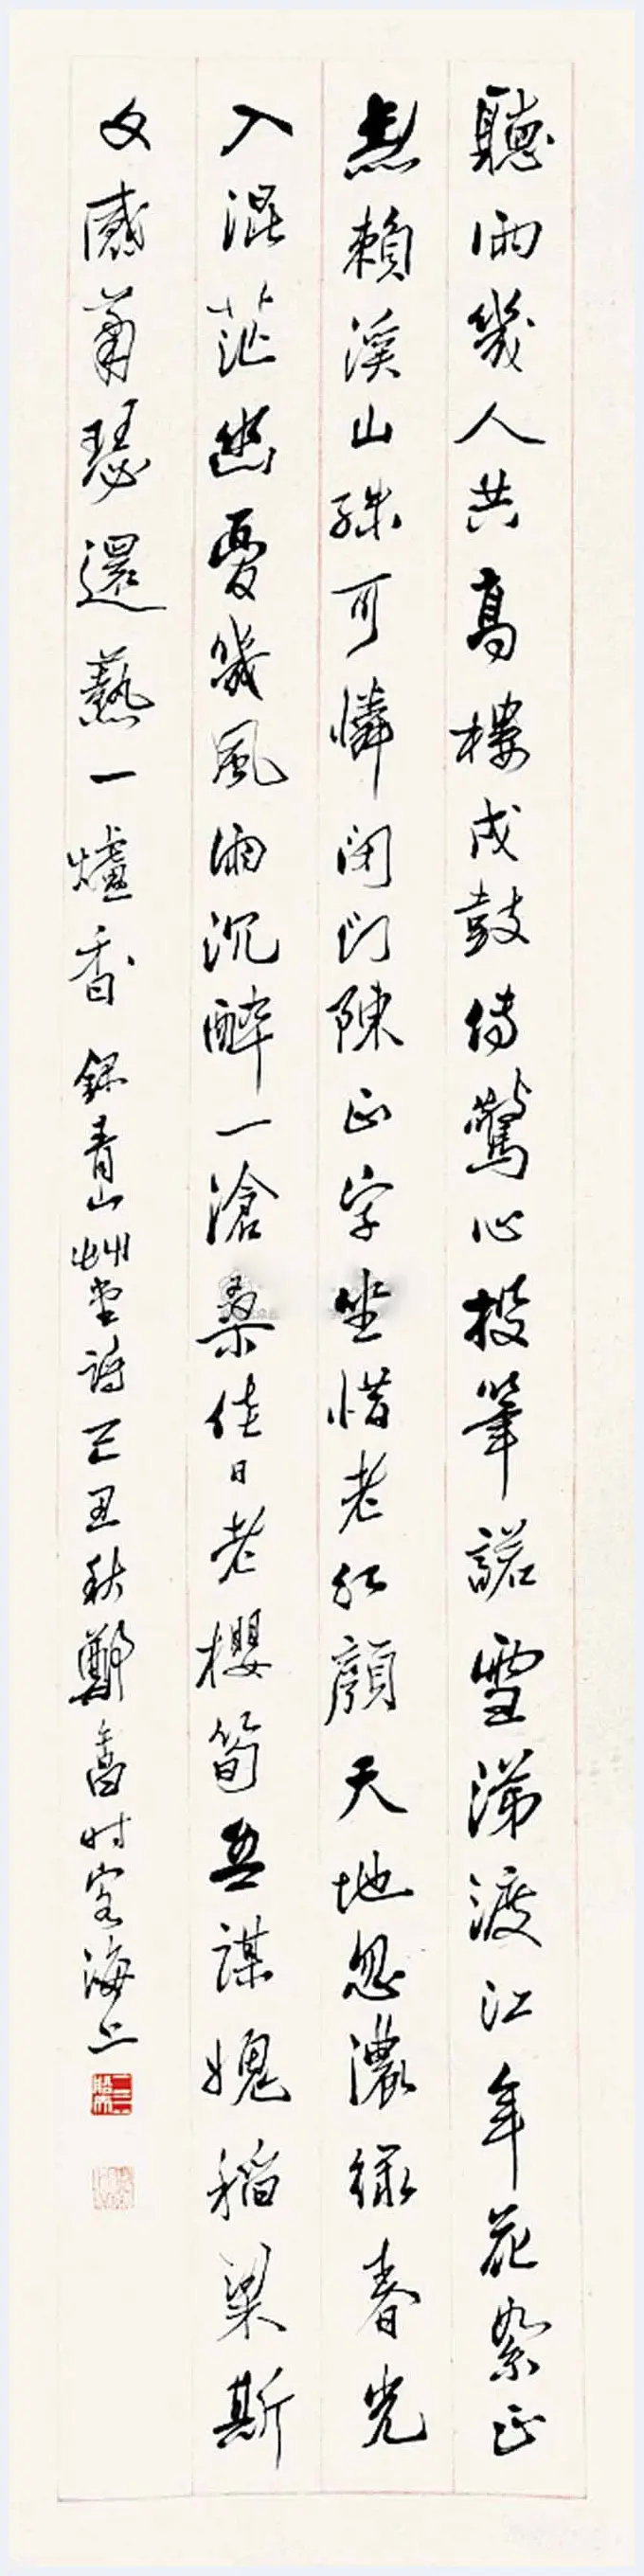 聽雨幾人共高樓戍鼓傳驚心投筆諾雪涕渡江年花絮正
無賴溪山殊可憐閉門陳正字坐惜老紅顏天地忽濃綠春光
入混茫幽憂幾風雨沉醉一滄桑佳日老櫻筍吾謀媿稻粱斯
文感蕭瑟還爇一爐香 錄青山艸堂詩己丑秋鄭時客海上